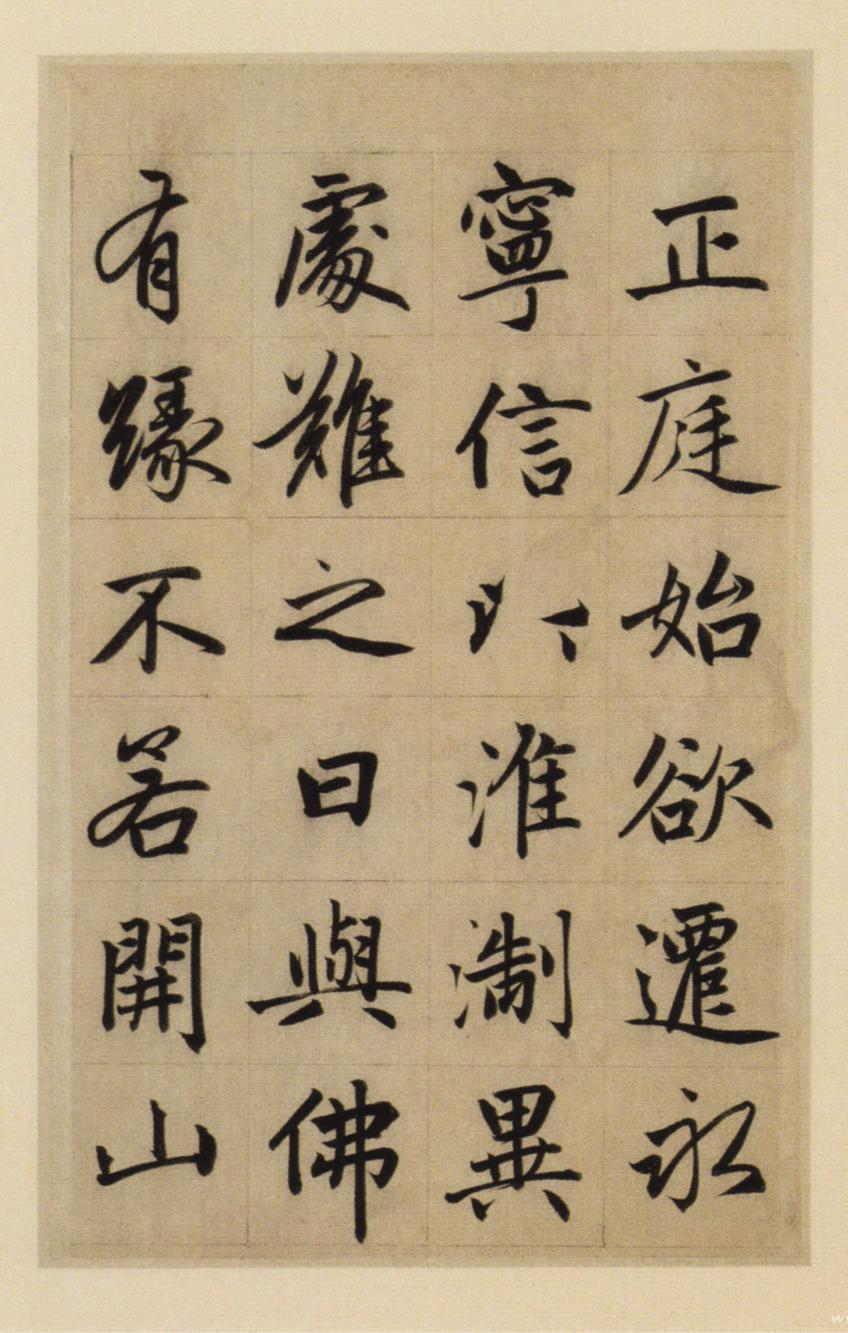 正庭始欲遷永
寧信以淮澥異
處難之曰與佛
有緣不若開山